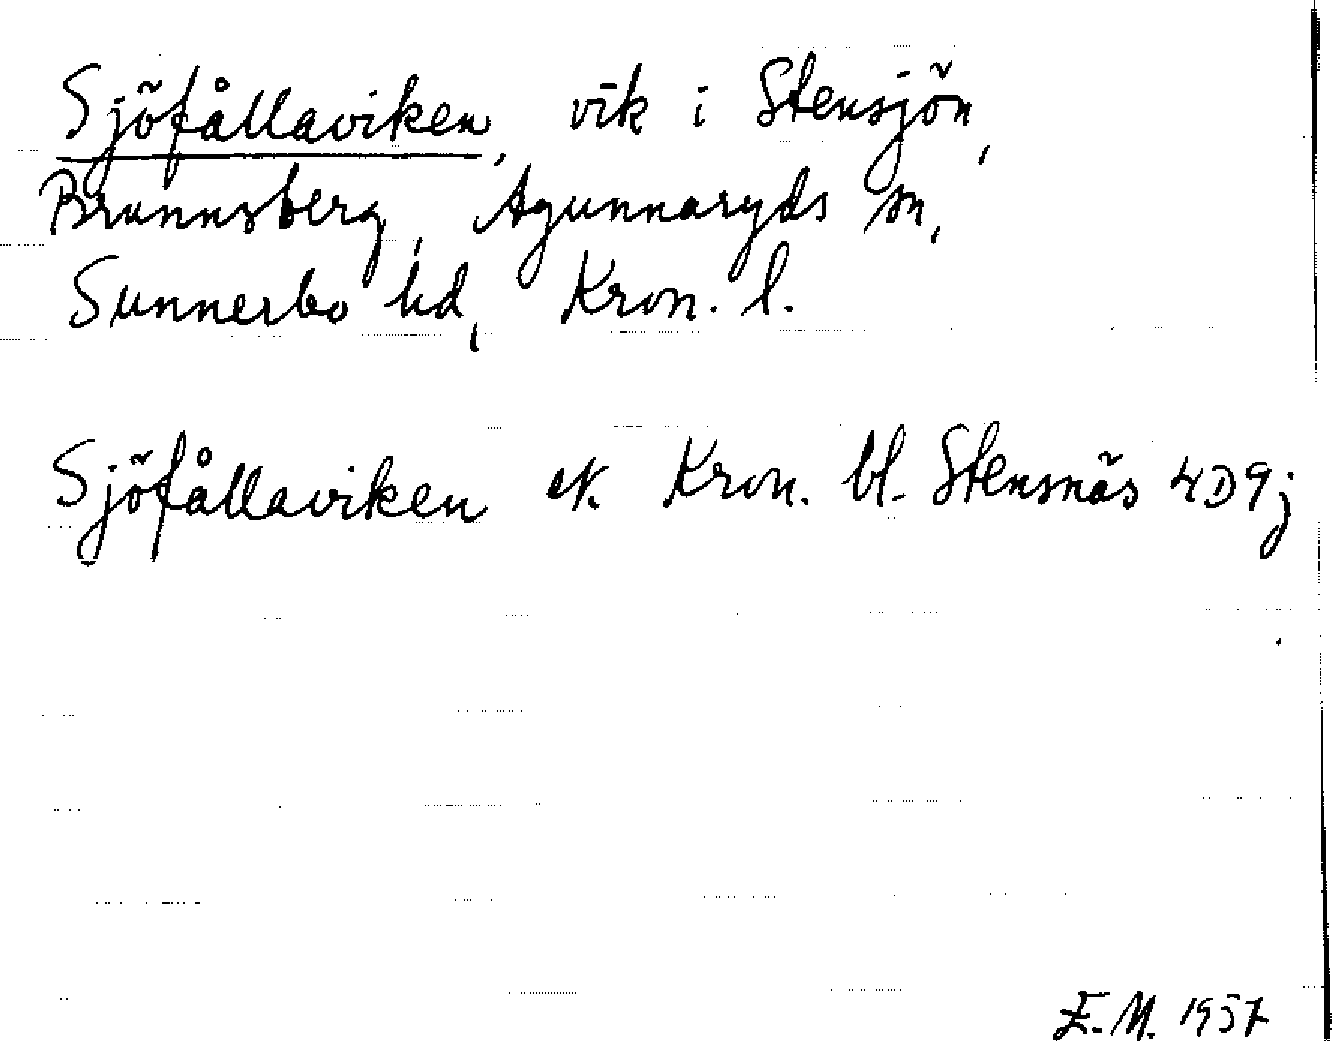 Sjöfållaviken, vik i Stensjön,
Brunnsberg, Agunnaryds sn,
Sunnerbo hd, Kron. l.
Sjöfållaviken ek. Kron. bl. Stensnäs 4D9j
E.M. 1957